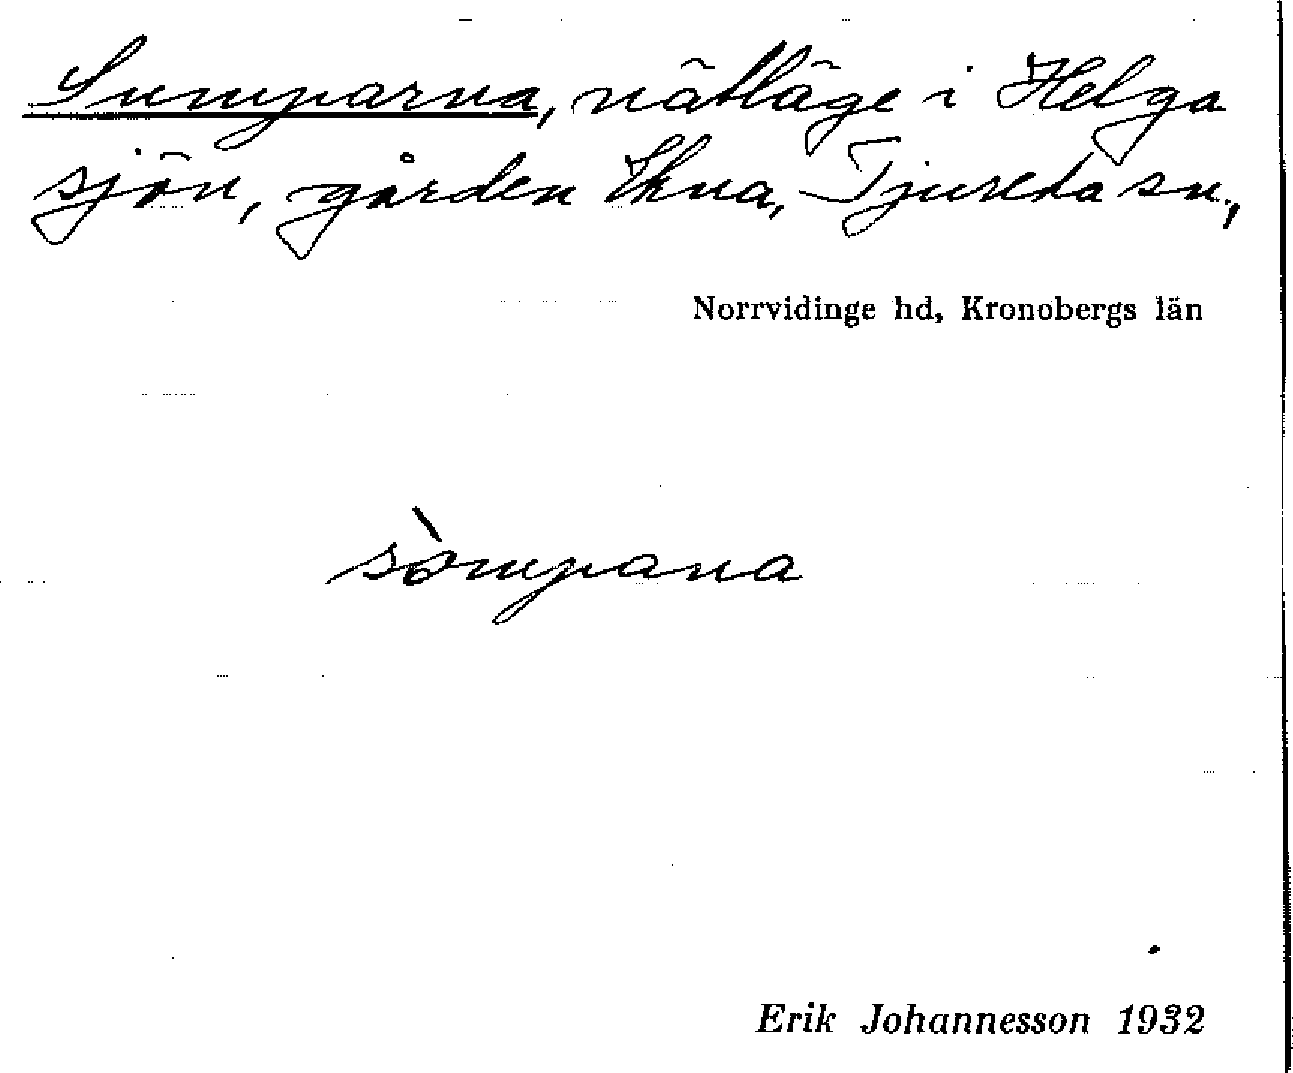 Sumparna, nätläge i Helga
sjön, gården Ekna, Tjureda sn.,
Norrvidinge hd, Kronobergs län
sòmpana
Erik Johannesson 1932